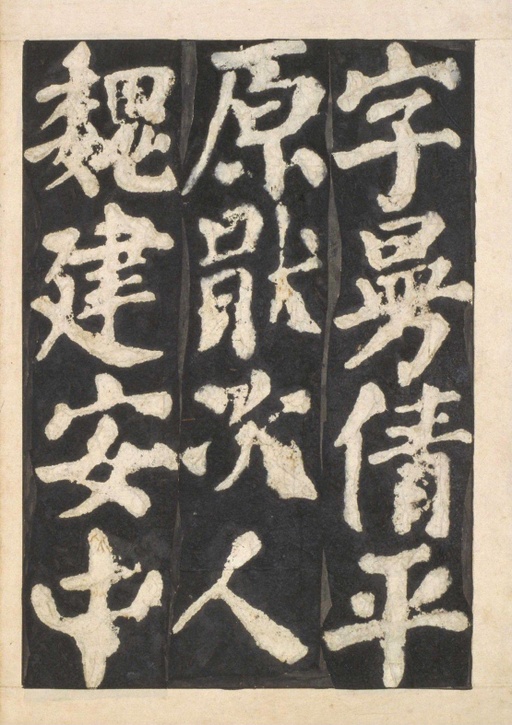 字曼倩平
原猒次人
魏建安中